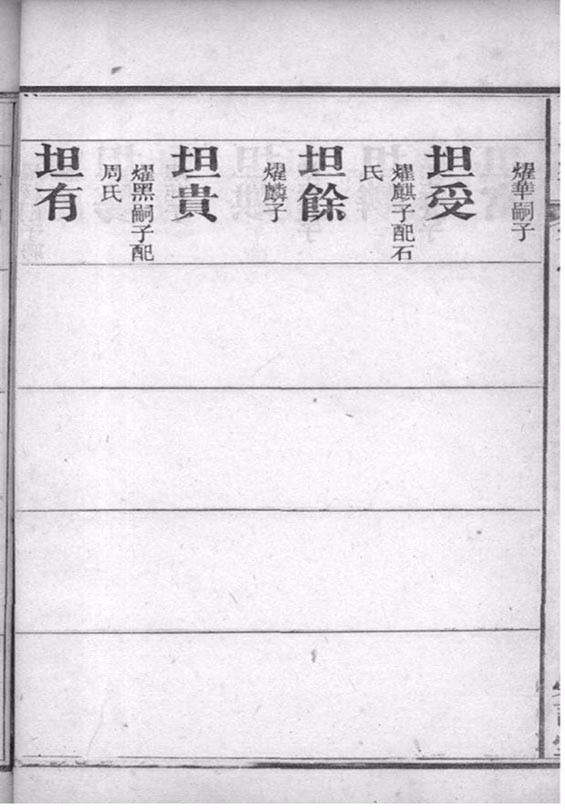 燿華嗣子
坦受
燿麒子配石
氏
坦餘
燿麟子
坦貴
燿黑嗣子配
周氏
坦有